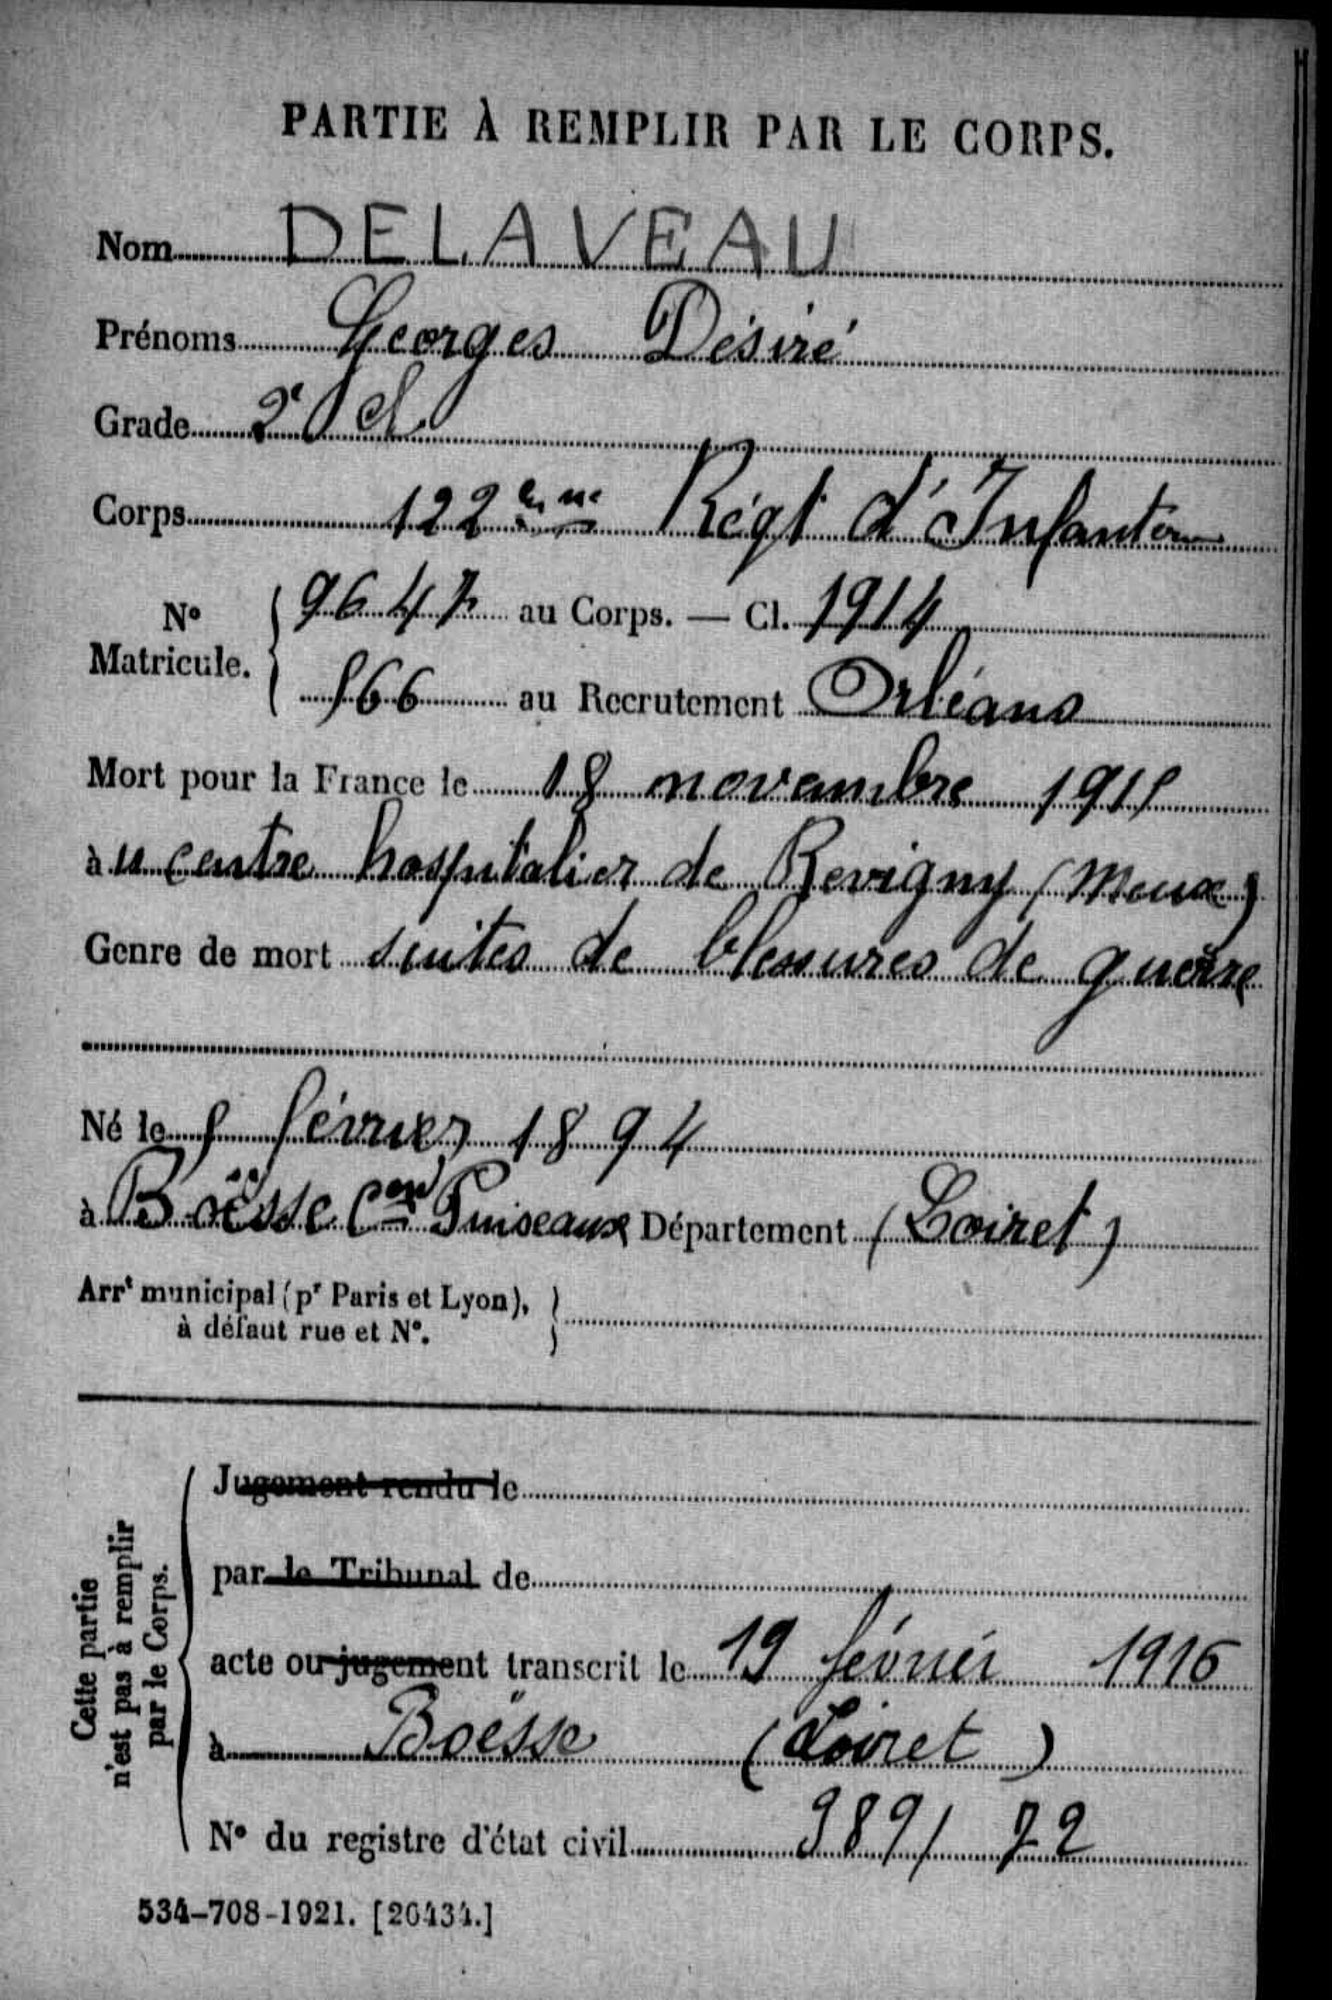 PARTIE À REMPLIR PAR LE CORPS.
Nom DELAVEAU
Prénoms Georges Désiré
Grade 2e Cl
Corps 122ème Régt d'Infanterie
No Matricule. 9647 au Corps. — Cl. 1914
566 au Recrutement Orléans
Mort pour la France le 18 novembre 1915
au centre hospitalier de Revigny (Meuse)
Genre de mort suites de blessures de guerre
Né le 5 février 1894
à Boësse Con Puiseaux Département (Loiret)
Arrt municipal (pr Paris et Lyon),
à défaut rue et No.
Cette partie
n'est pas à remplir
par le Corps.
Jugement rendu le
par le Tribunal de
acte ou jugement transcrit le 19 février 1916
à Boësse (Loiret)
No du registre d'état civil 389/ 72
534-708-1921. [20434.]